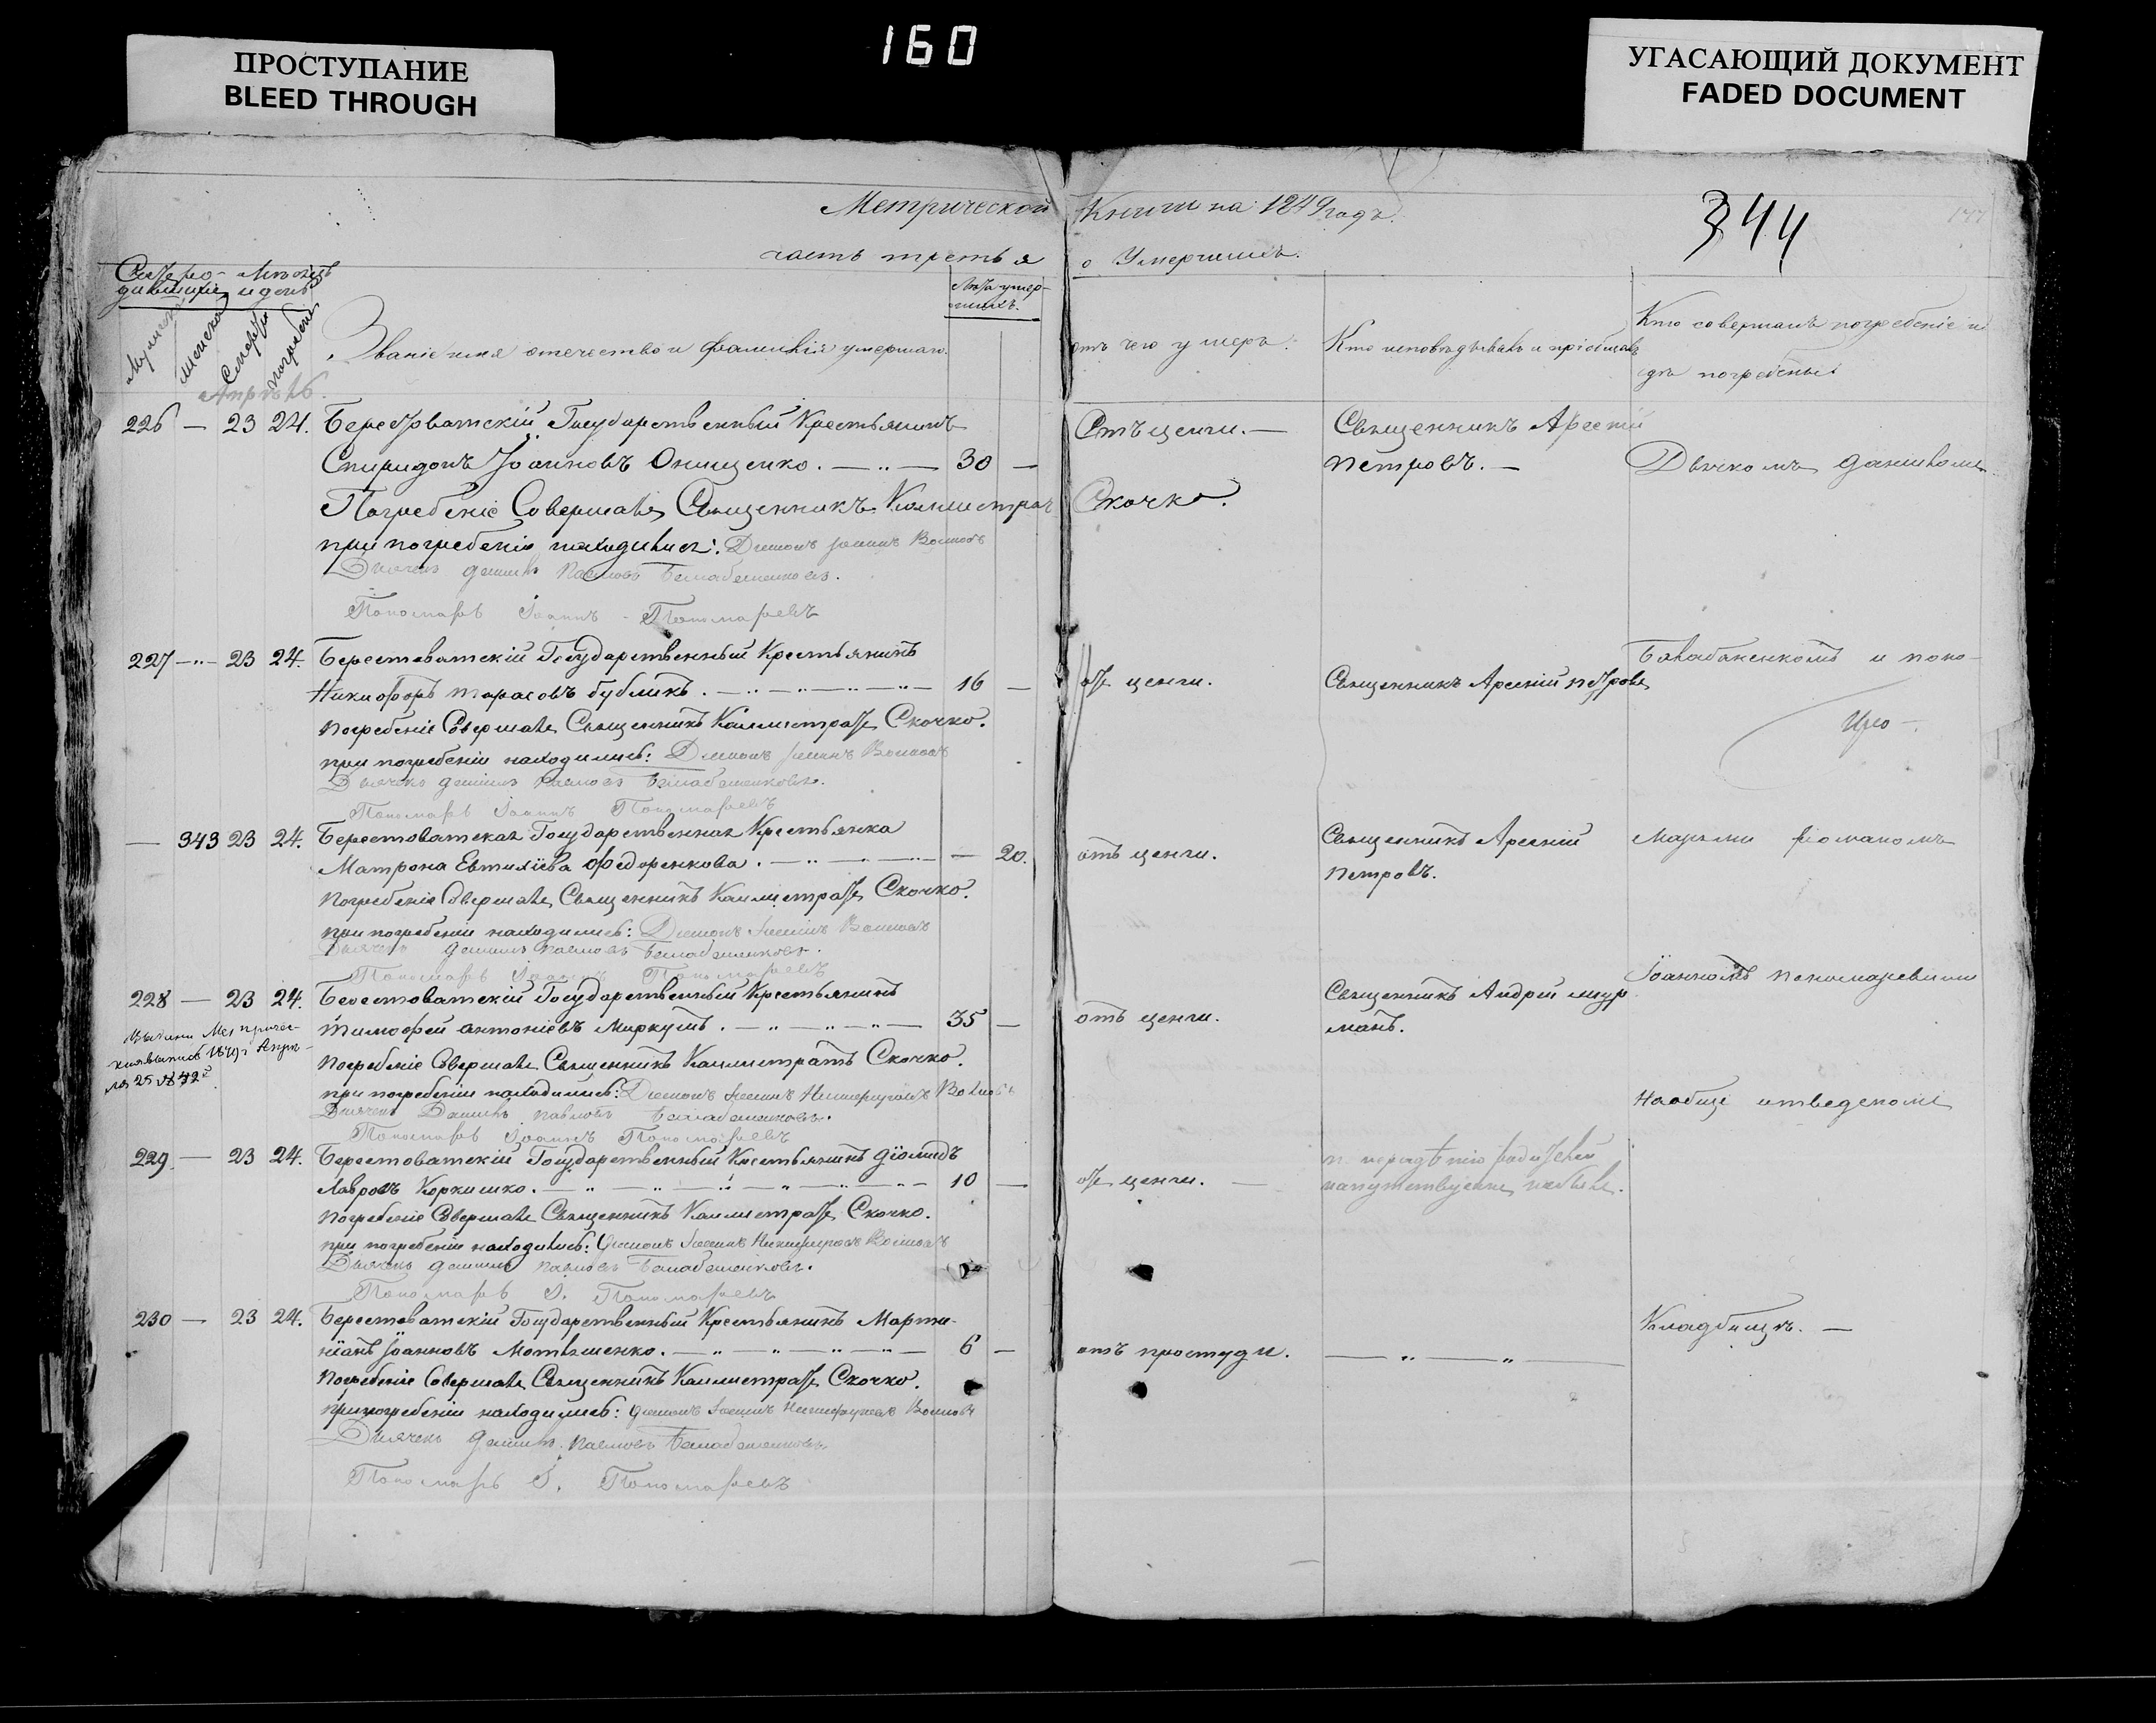 160
ПРОСТУПАНИЕ
BLEED THROUGH
УГАСАЮЩИЙ ДОКУМЕНТ
FADED DOCUMENT
Метрической Книги на 1849 годъ.
344
часть третья о Умершихъ.
Мужеска
женска
Смерти
погребенія
Званіе имя отечество и фамилія умершаго.
Лѣта умер-
шихъ.
отъ чего умеръ.
Кто исповѣдывалъ и пріобщалъ
Кто совершалъ погребеніе и
гдѣ погребены
Апрѣль.
226 — 23 24. Берестоватскій Государственный Крестьянинъ
Спиридонъ Іоанновъ Онищенко. — 30 —
Отъ ценги. —
Священникъ Арсеній
Петровъ. —
Дьячкомъ Даниломъ
Погребеніе Совершалъ Священникъ Каллистратъ Скочко.
при погребеніи находились: Діаконъ Іоаннъ Волковъ
Дьячекъ Данилъ Павловъ Балабаненковъ.
Пономарь Іоаннъ Пономаревъ
227 — 23 24. Берестоватскій Государственный Крестьянинъ
Никифоръ Тарасовъ Бубликъ. — 16 —
отъ ценги.
Священникъ Арсеній Петровъ
Балабаненкомъ и поно-
Погребеніе Совершалъ Священникъ Каллистратъ Скочко.
при погребеніи находились: Діаконъ Іоаннъ Волковъ
Дьячекъ Данилъ Павловъ Балабаненковъ.
Пономарь Іоаннъ Пономаревъ
— 343 23 24. Берестоватская Государственная Крестьянка
Матрона Евтихіева Федоренкова. — 20.
отъ ценги.
Священникъ Арсеній
Петровъ.
Погребеніе Совершалъ Священникъ Каллистратъ Скочко.
при погребеніи находились: Діаконъ Іоаннъ Волковъ
Дьячекъ Данилъ Павловъ Балабаненковъ.
Пономарь Іоаннъ Пономаревъ
228 — 23 24. Берестоватскій Государственный Крестьянинъ
Тимофей Антоніевъ Миркутъ. — 35 —
отъ ценги.
Священникъ Андрей
Іоанномъ Пономаревымъ
Погребеніе Совершалъ Священникъ Каллистратъ Скочко.
при погребеніи находились: Діаконъ Іоаннъ Никифоровъ Волковъ
Дьячекъ Данилъ Павловъ Балабаненковъ.
Пономарь Іоаннъ Пономаревъ
На обще отведеномъ
229 — 23 24. Берестоватскій Государственный Крестьянинъ Діомидъ
Лавровъ Коркишко. — 10 —
отъ ценги. —
по нерадѣнію родителей
напутствуемъ небылъ.
Погребеніе Совершалъ Священникъ Каллистратъ Скочко.
при погребеніи находились: Діаконъ Іоаннъ Никифоровъ Волковъ
Дьячекъ Данилъ Павловъ Балабаненковъ.
Пономарь І. Пономаревъ
230 — 23 24. Берестоватскій Государственный Крестьянинъ Марти-
ніанъ Іоанновъ Мотвѣшенко. — 6 —
отъ простуди.
Кладбищѣ. —
Погребеніе Совершалъ Священникъ Каллистратъ Скочко.
при погребеніи находились: Діаконъ Іоаннъ Никифоровъ Волковъ
Дьячекъ Данилъ Павловъ Балабаненковъ
Пономарь І. Пономаревъ